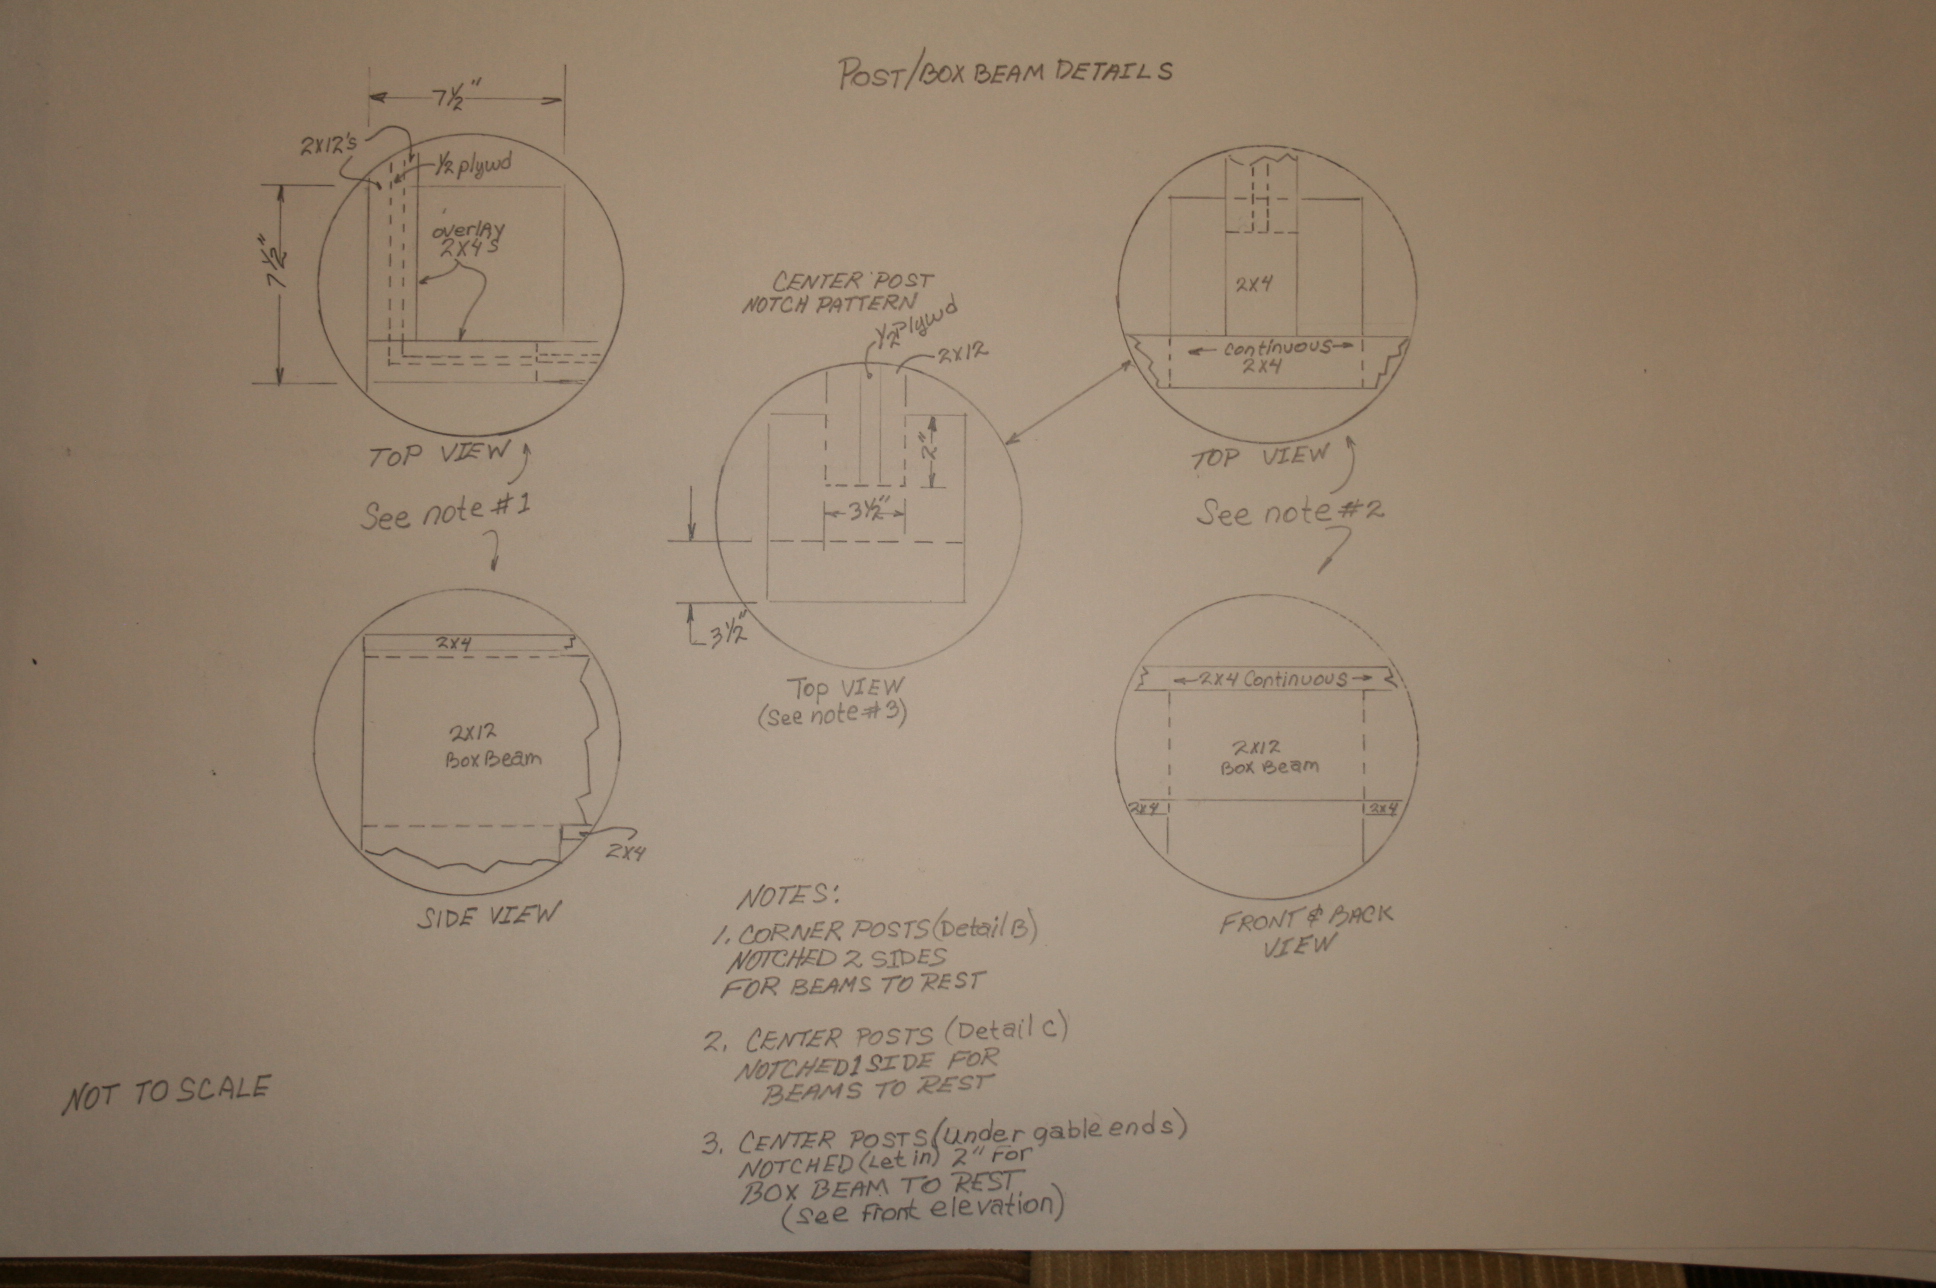 POST/BOX BEAM DETAILS
7½"
2X12's
½ plywd
7½"
overlay
2X4's
TOP VIEW
See note #1
CENTER POST
NOTCH PATTERN
½ plywd
2X12
2"
3½"
3½"
Top VIEW
(See note #3)
2X4
continuous
2X4
TOP VIEW
See note #2
2X4
2X12
Box Beam
2X4
SIDE VIEW
2X4 Continuous
2X12
Box Beam
2X4
2X4
FRONT & BACK
VIEW
NOTES:
1. CORNER POSTS (Detail B)
NOTCHED 2 SIDES
FOR BEAMS TO REST
2. CENTER POSTS (Detail C)
NOTCHED 1 SIDE FOR
BEAMS TO REST
3. CENTER POSTS (under gable ends)
NOTCHED (Let in) 2" For
BOX BEAM TO REST
(see front elevation)
NOT TO SCALE